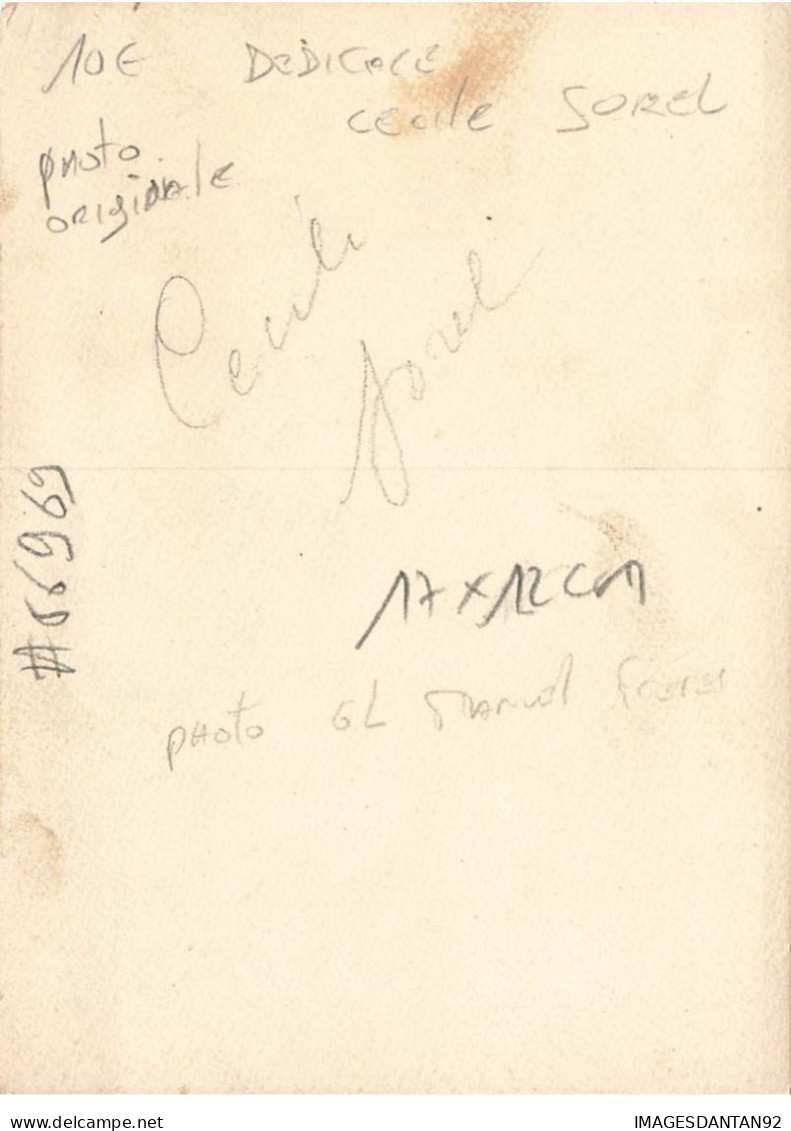 10€ DEDICACE
CECILE SOREL
PHOTO
ORIGINALE
Cecile
Sorel
#66969
17 x 12 cm
PHOTO GL MANUEL FRERES
delcampe.net
IMAGESDANTAN92